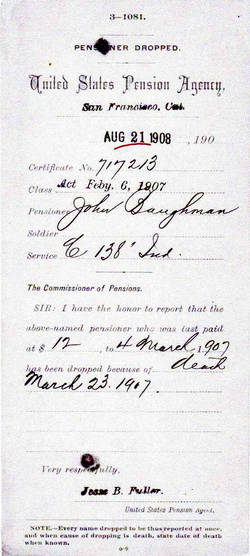 3—1081.
PENSIONER DROPPED.
United States Pension Agency,
San Francisco, Cal.
AUG 21 1908 , 190
Certificate No. 717213
Class Act Feby. 6, 1907
Pensioner John Baughman
Soldier
Service E 138" Ind.
The Commissioner of Pensions.
SIR: I have the honor to report that the
above-named pensioner who was last paid
at $ 12 , to 4 March, 1907
has been dropped because of death
March 23. 1907.
Very respectfully,
Jesse B. Fuller.
United States Pension Agent.
NOTE.—Every name dropped to be thus reported at once,
and when cause of dropping is death, state date of death
when known.